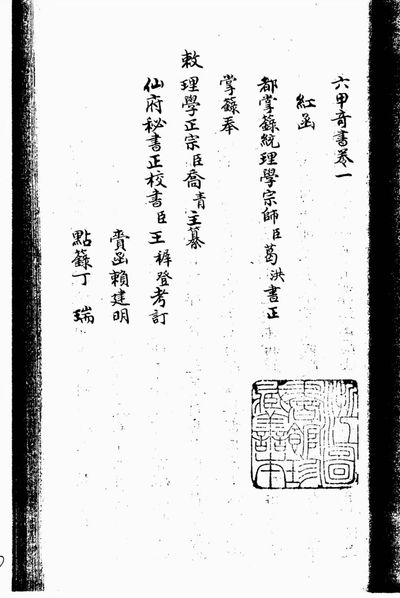 六甲奇書卷一
紅函
都掌籙統理學宗師臣葛洪書正
掌籙奉
敕理學正宗臣喬青主纂
仙府秘書正校書臣王穉登考訂
賫函賴建明
點籙丁瑞
浙江圖書館珍藏善本